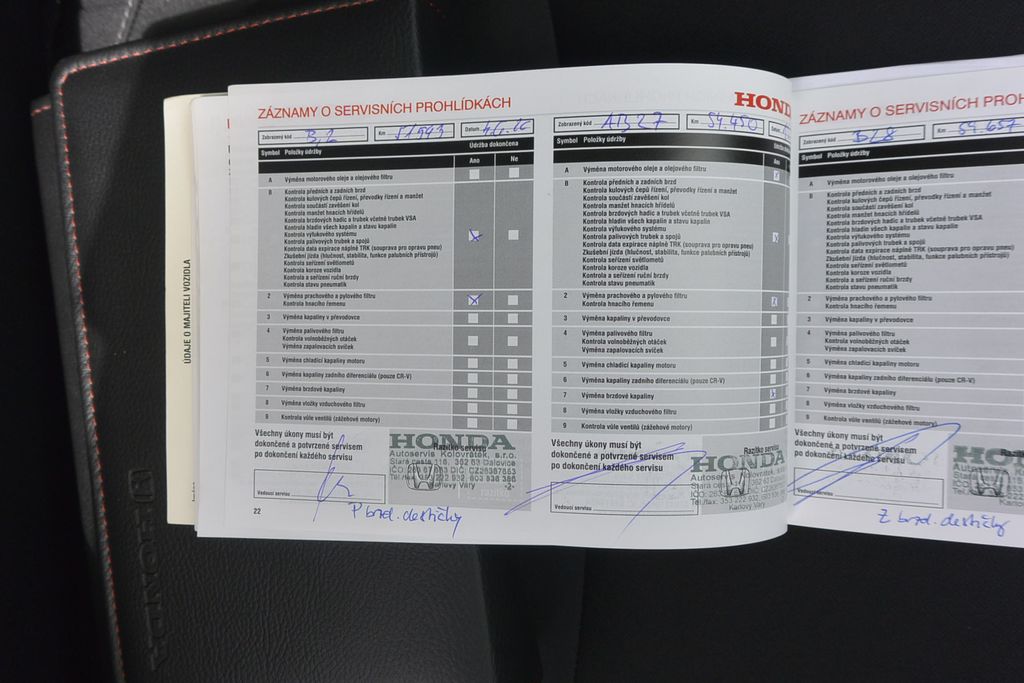 ÚDAJE O MAJITELI VOZIDLA
ZÁZNAMY O SERVISNÍCH PROHLÍDKÁCH
Zobrazený kód B,2 Km 51943 Datum
Symbol Položky údržby Údržba dokončena
Ano Ne
A Výměna motorového oleje a olejového filtru
B Kontrola předních a zadních brzd
Kontrola kulových čepů řízení, převodky řízení a manžet
Kontrola součástí zavěšení kol
Kontrola manžet hnacích hřídelů
Kontrola brzdových hadic a trubek včetně trubek VSA
Kontrola hladin všech kapalin a stavu kapalin
Kontrola výfukového systému
Kontrola palivových trubek a spojů
Kontrola data expirace náplně TRK (souprava pro opravu pneu)
Zkušební jízda (hlučnost, stabilita, funkce palubních přístrojů)
Kontrola seřízení světlometů
Kontrola koroze vozidla
Kontrola a seřízení ruční brzdy
Kontrola stavu pneumatik
2 Výměna prachového a pylového filtru
Kontrola hnacího řemenu
3 Výměna kapaliny v převodovce
4 Výměna palivového filtru
Kontrola volnoběžných otáček
Výměna zapalovacích svíček
5 Výměna chladicí kapaliny motoru
6 Výměna kapaliny zadního diferenciálu (pouze CR-V)
7 Výměna brzdové kapaliny
8 Výměna vložky vzduchového filtru
9 Kontrola vůle ventilů (zážehové motory)
Všechny úkony musí být
dokončené a potvrzené servisem
po dokončení každého servisu
Vedoucí servisu
Razítko servisu
HONDA
Autoservis Kolovrátek, s.r.o.
Karlovy Vary
-2-
22
P brzd. destičky
HOND
Zobrazený kód AB27 Km 54.450 Datum
Symbol Položky údržby
Ano
A Výměna motorového oleje a olejového filtru
B Kontrola předních a zadních brzd
Kontrola kulových čepů řízení, převodky řízení a manžet
Kontrola součástí zavěšení kol
Kontrola manžet hnacích hřídelů
Kontrola brzdových hadic a trubek včetně trubek VSA
Kontrola hladin všech kapalin a stavu kapalin
Kontrola výfukového systému
Kontrola palivových trubek a spojů
Kontrola data expirace náplně TRK (souprava pro opravu pneu)
Zkušební jízda (hlučnost, stabilita, funkce palubních přístrojů)
Kontrola seřízení světlometů
Kontrola koroze vozidla
Kontrola a seřízení ruční brzdy
Kontrola stavu pneumatik
2 Výměna prachového a pylového filtru
Kontrola hnacího řemenu
3 Výměna kapaliny v převodovce
4 Výměna palivového filtru
Kontrola volnoběžných otáček
Výměna zapalovacích svíček
5 Výměna chladicí kapaliny motoru
6 Výměna kapaliny zadního diferenciálu (pouze CR-V)
7 Výměna brzdové kapaliny
8 Výměna vložky vzduchového filtru
9 Kontrola vůle ventilů (zážehové motory)
Všechny úkony musí být
dokončené a potvrzené servisem
po dokončení každého servisu
Vedoucí servisu
Razítko servisu
HONDA
Karlovy Vary
ZÁZNAMY O SERVISNÍCH PROH
Zobrazený kód Km 54.657
Symbol Položky údržby
A Výměna motorového oleje a olejového filtru
B Kontrola předních a zadních brzd
Kontrola kulových čepů řízení, převodky řízení a manžet
Kontrola součástí zavěšení kol
Kontrola manžet hnacích hřídelů
Kontrola brzdových hadic a trubek včetně trubek VSA
Kontrola hladin všech kapalin a stavu kapalin
Kontrola výfukového systému
Kontrola palivových trubek a spojů
Kontrola data expirace náplně TRK (souprava pro opravu pneu)
Zkušební jízda (hlučnost, stabilita, funkce palubních přístrojů)
Kontrola seřízení světlometů
Kontrola koroze vozidla
Kontrola a seřízení ruční brzdy
Kontrola stavu pneumatik
2 Výměna prachového a pylového filtru
Kontrola hnacího řemenu
3 Výměna kapaliny v převodovce
4 Výměna palivového filtru
Kontrola volnoběžných otáček
Výměna zapalovacích svíček
5 Výměna chladicí kapaliny motoru
6 Výměna kapaliny zadního diferenciálu (pouze CR-V)
7 Výměna brzdové kapaliny
8 Výměna vložky vzduchového filtru
9 Kontrola vůle ventilů (zážehové motory)
Všechny úkony musí být
dokončené a potvrzené servisem
po dokončení každého servisu
Vedoucí servisu
Z brzd. destičky
HONDA